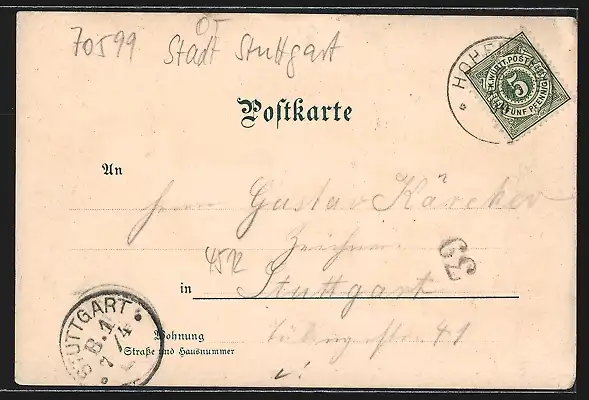 70599 OT Stadt Stuttgart
HOHEN
K. WÜRT. POST
5
FÜNF PFENNIG
Postkarte
An Herrn Gustav Kärcher
Zeichner
63
4512
in Stuttgart
STUTTGART
B.1
7/4
Wohnung
Straße und Hausnummer
41